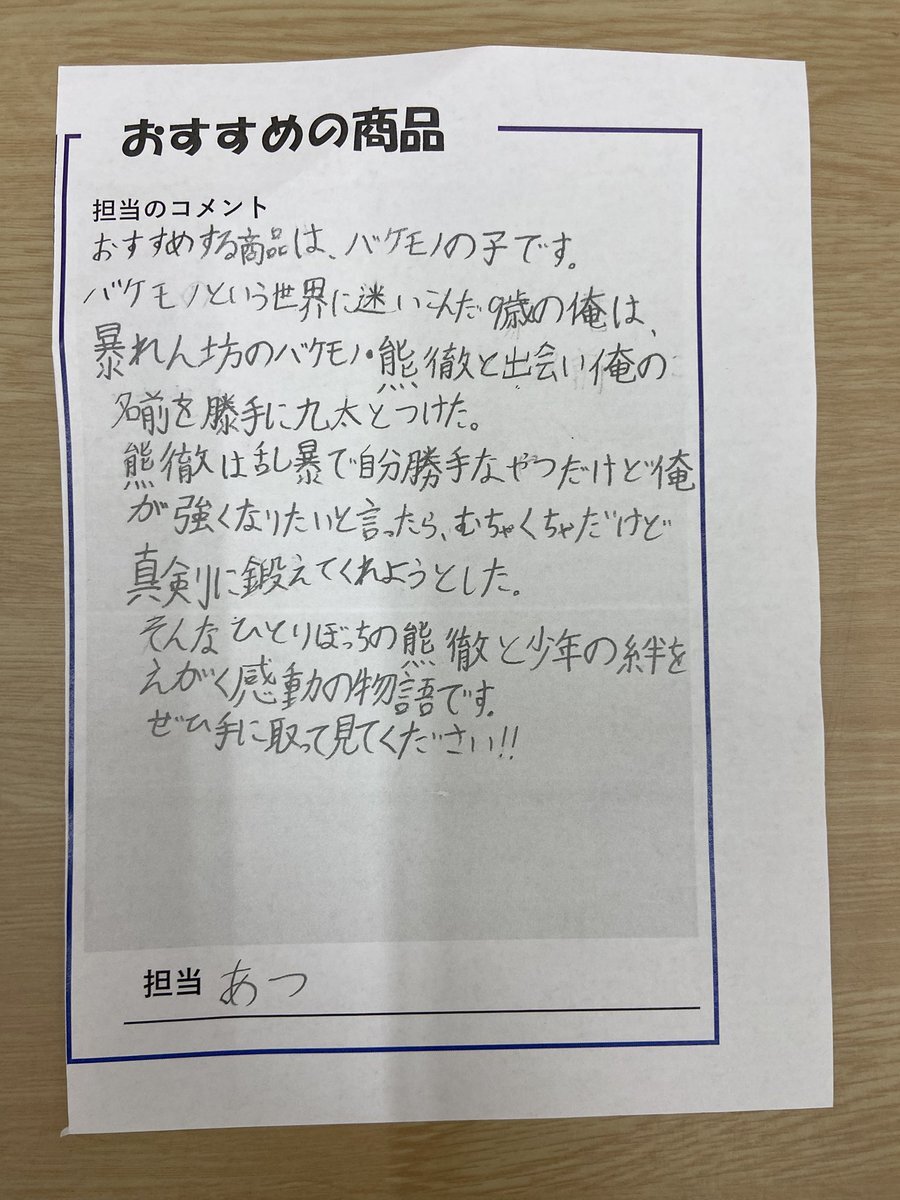 おすすめの商品
担当のコメント
おすすめする商品は、バケモノの子です。
バケモノという世界に迷いこんだ9歳の俺は、
暴れん坊のバケモノ・熊徹と出会い俺の
名前を勝手に九太とつけた。
熊徹は乱暴で自分勝手なやつだけど俺
が強くなりたいと言ったら、むちゃくちゃだけど
真剣に鍛えてくれようとした。
そんなひとりぼっちの熊徹と少年の絆を
えがく感動の物語です。
ぜひ手に取って見てください!!
担当 あつ